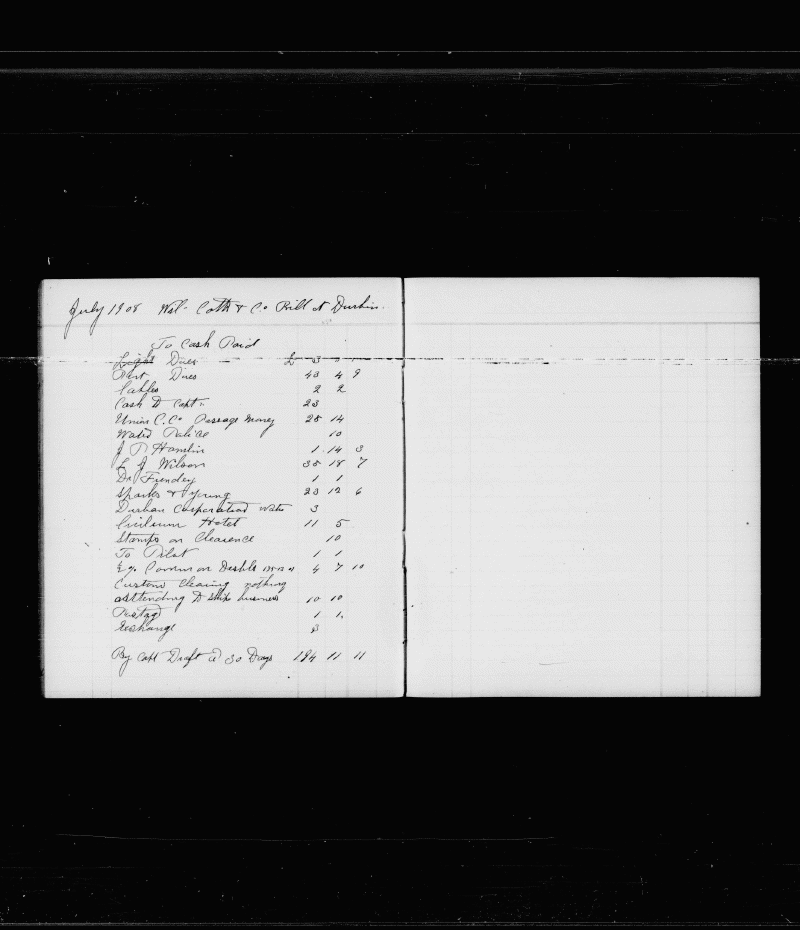 July 1908 Wal. Cotts & Co Bill at Durban.
To Cash Paid
Light Dues £ 3 " "
Port Dues 43 4 9
Cables 2 2
Cash D Capt. 23
Union C. Co Passage Money 28 14
Water Police 10
J P Hamlin 1 14 3
L J Wilson 35 18 7
Dr 1 1
Sparks & Young 23 12 6
Durban Corporation water 3
Hotel 11 5
Stamps on Clearence 10
To Pilot 1 1
4 7 10
Custom Clearing nothing
asttending D Ship business 10 10
Postag 1 1.
Exchange 3
By Capt Draft @ 30 Days 194 11 11